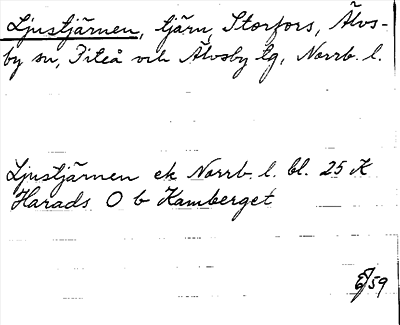 Ljustjärnen, tjärn, Storfors, Älvs-
by sn, Piteå och Älvsby tg, Norrb. l.
Ljustjärnen ek Norrb. l. bl. 25 K
Harads O b Kamberget
/59